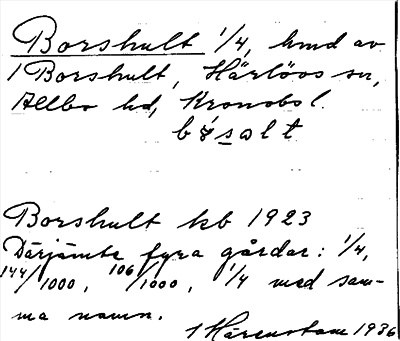 Borshult 1/4, hmd av
1 Borshult, Härlövs sn,
Allbo hd, Kronobs l.
Borshult kb 1923
Därjämte fyra gårdar: 1/4,
144/1000, 106/1000, 1/4 med sam-
ma namn.
1936